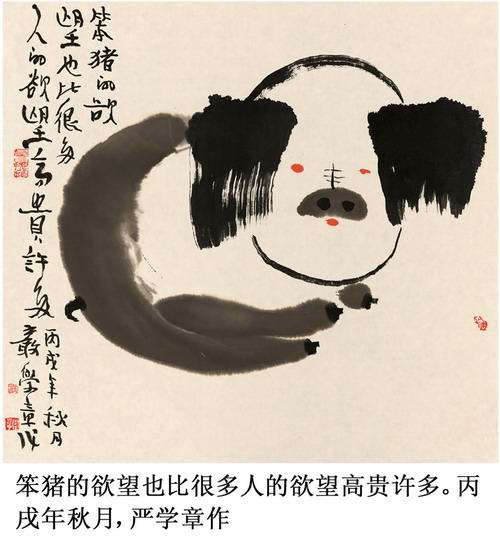 笨猪的欲
望也比很多
人的欲望高貴許多
丙戌年秋月
嚴學章作
笨猪的欲望也比很多人的欲望高贵许多。丙
戌年秋月，严学章作